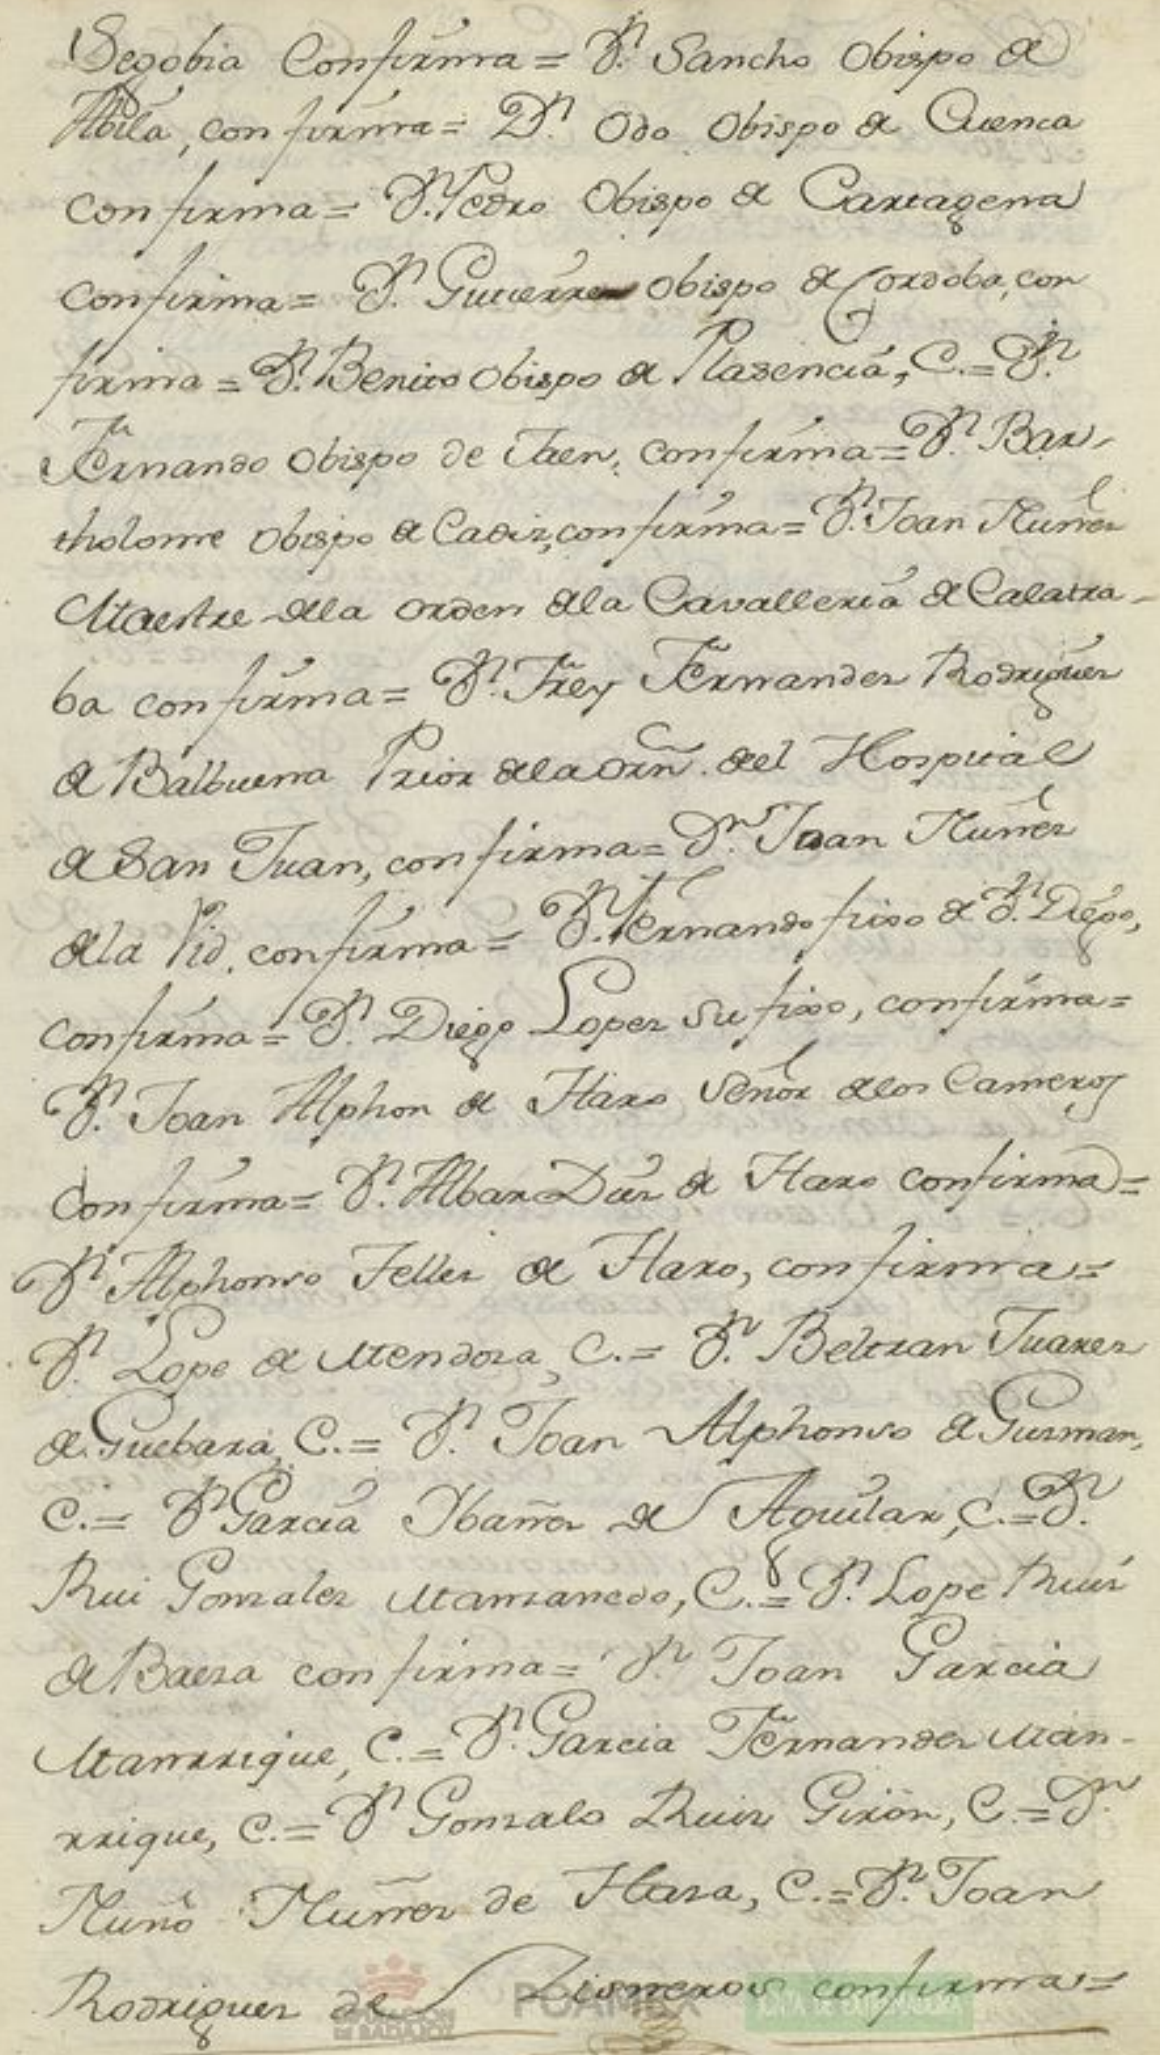 Segobia Confirma = Dn. Sancho Obispo de
Abila, confirma = Dn. Odo Obispo de Cuenca
confirma = Dn. Pedro Obispo de Cartagena
confirma = Dn. Gutierre obispo de Cordoba, con
firma = Dn. Benito Obispo de Plasencia, C. = Dn.
Fernando Obispo de Jaen, confirma = Dn. Bar-
tholome Obispo de Cadiz, confirma = Dn. Joan Nuñez
Maestre dela orden dela Cavalleria de Calatra-
ba confirma = Dn. Frey Fernandez Rodriguez
de Balbuena Prior dela Orn. del Hospital
de San Juan, confirma = Dn. Joan Nuñez
dela Vid, confirma = Dn. Fernando fixo de Dn. Diego,
confirma = Dn. Diego Lopez su fixo, confirma =
Dn. Joan Alphon de Haro Señor delos Cameros
confirma = Dn. Albar Diaz de Haro confirma =
Dn. Alphonso Tellez de Haro, confirma =
Dn. Lope de Mendoza, C. = Dn. Beltran Juarez
de Guebara, C. = Dn. Joan Alphonso de Guzman,
C. = Dn Garcia Ybañez de Aguilar, C. = Dn.
Rui Gonzalez Manzanedo, C. = Dn. Lope Ruiz
de Baeza confirma = Dn Joan Garcia
Manrrique, C. = Dn. Garcia Fernandez Man-
rrique, C. = Dn Gonzalo Ruiz Girón, C. = Dn.
Nuño Nuñez de Haza, C. = Dn. Joan
Rodriguez de Zisneros confirma =
DIPUTACIÓN DE BADAJOZ